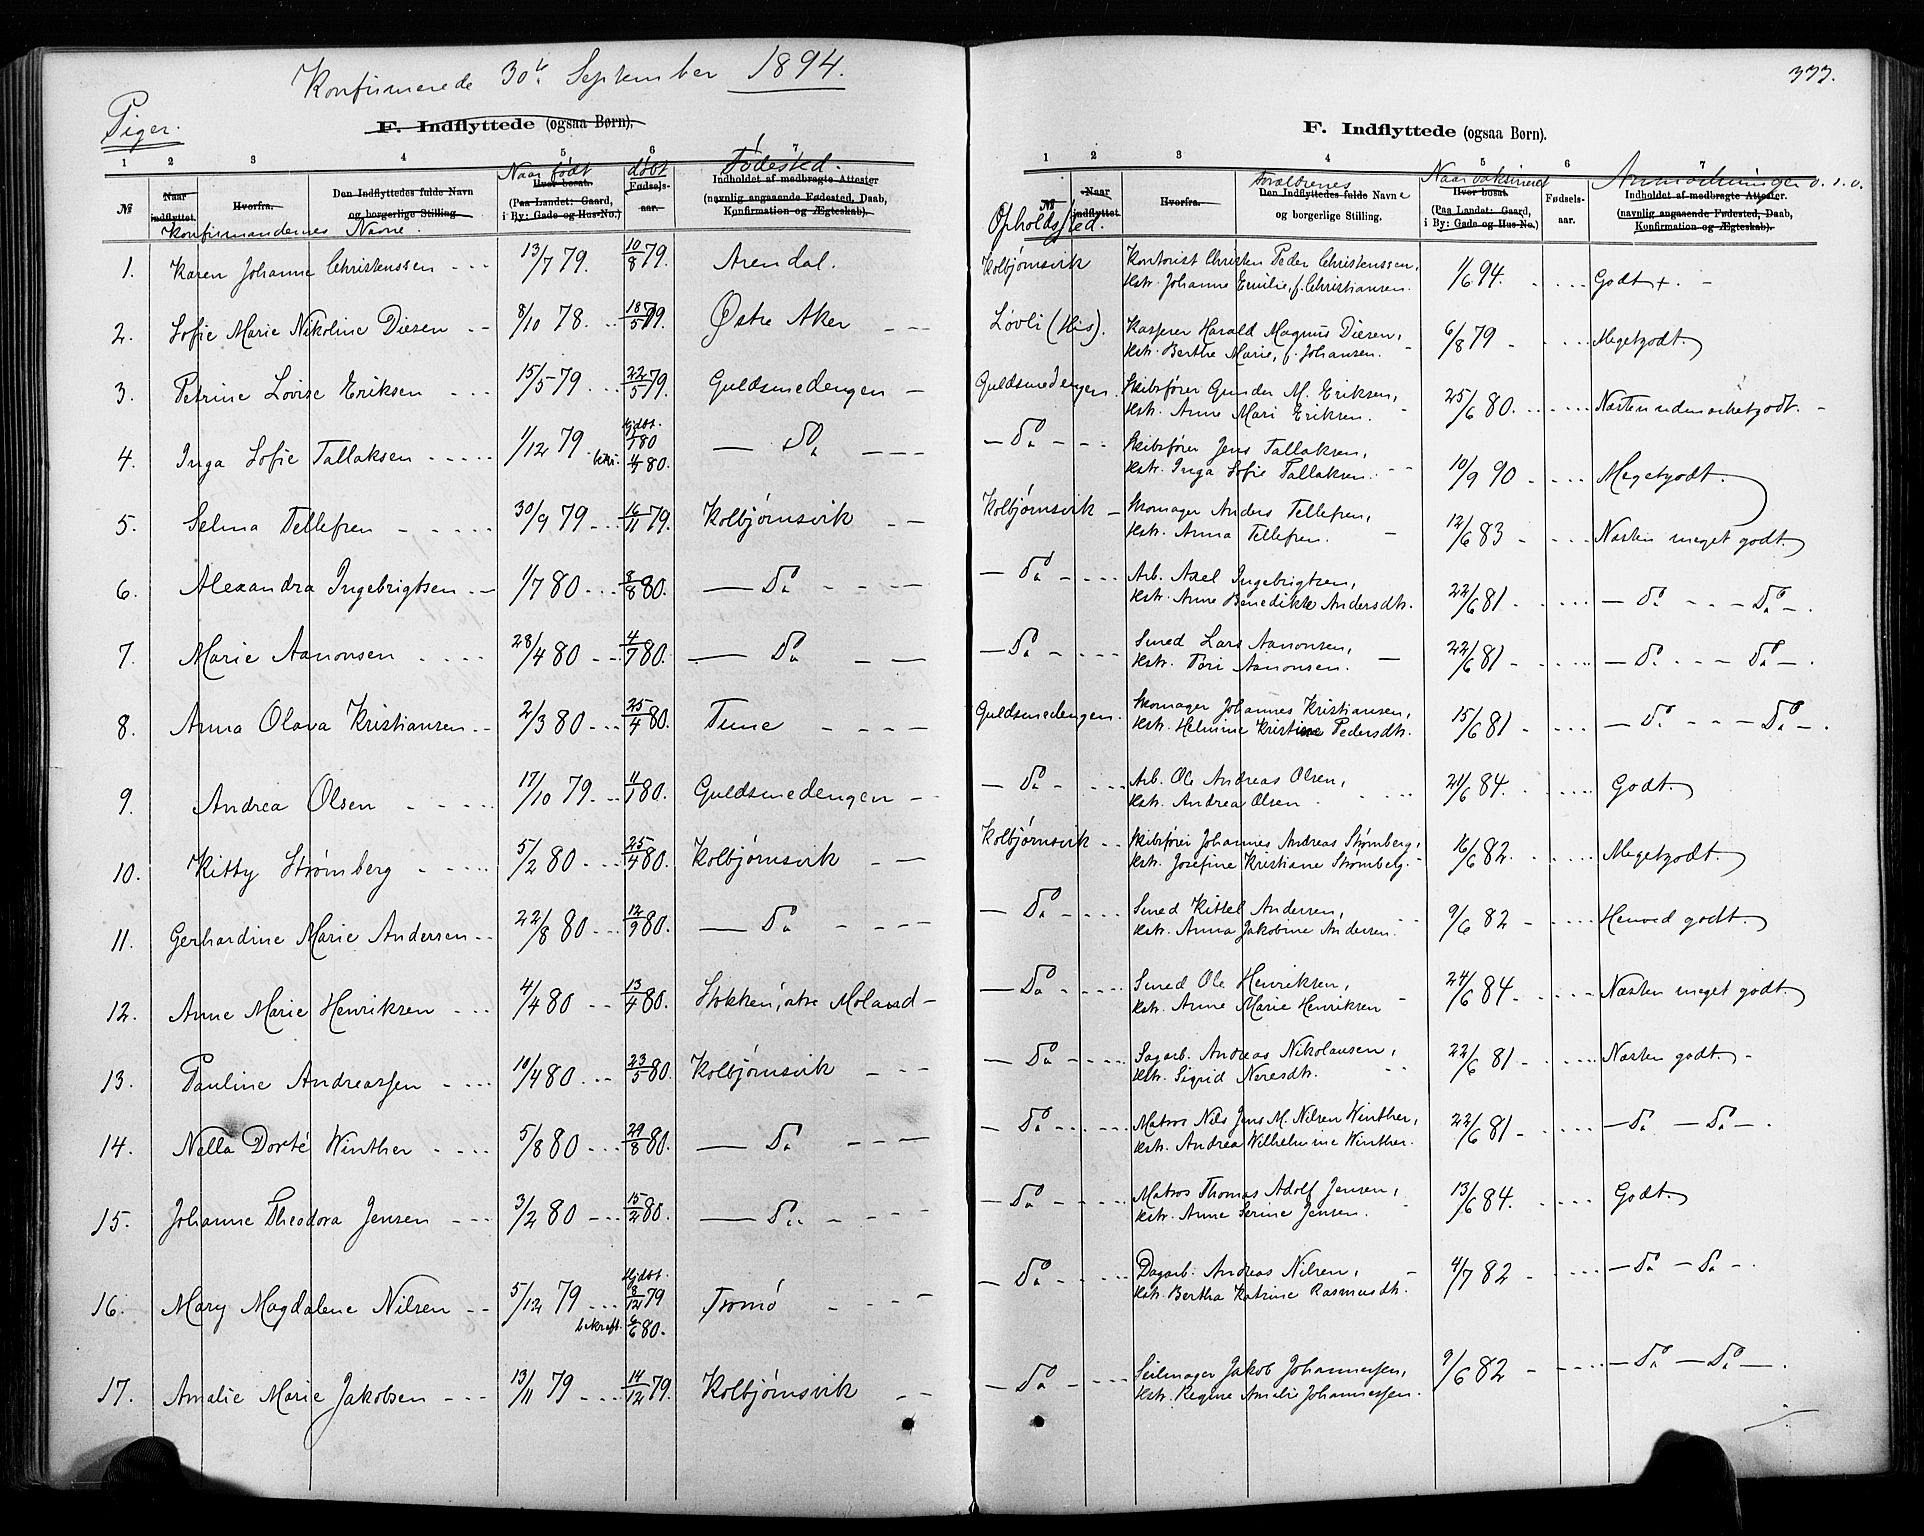 Konfirmerede 30te September 1894.
Piger.
F. Indflyttede (ogsaa Børn).
1 2 3 4 5 6 7
Naar født døbt Fødested.
№ Naar indflyttet. Hvorfra. Den Indflyttedes fulde Navn og borgerlige Stilling. Hvor bosat. (Paa Landet: Gaard, i By: Gade og Hus-No.) Fødselsaar. Indholdet af medbragte Attester (navnlig angaaende Fødested, Daab, Konfirmation og Ægteskab).
Konfirmandernes Navne.
1. Karen Johanne Christenssen - - - 13/7 79. 10/8 79. Arendal.
2. Sofie Marie Nikoline Diesen - - 8/10 78. - - 18/5 79. Østre Aker - - -
3. Petrine Lovise Eriksen - - - 15/5 79 - - - 22/5 79. Guldsmedengen -
4. Inga Sofie Tallaksen - - - - - 1/12 79. Hjdbt. 2/1 80 kri. 4/5 80. — Do — - - -
5. Selma Tellefsen - - - - - 30/9 79 - - - 16/11 79. Kolbjørnsvik - -
6. Alexandra Ingebrigtsen - - 1/7 80 - - - 8/8 80. — Do - - - -
7. Marie Aanonsen - - - - 28/4 80 - - - 4/7 80. — Do — —
8. Anna Olava Kristiansen - - 2/3 80 - - - 25/4 80. Tune - - - -
9. Andrea Olsen - - - - - 17/10 79. - - 11/1 80. Guldsmedengen - -
10. Kitty Strømberg - - - - - 5/2 80 - - - 25/4 80. Kolbjørnsvik - -
11. Gerhardine Marie Andersen - - 22/8 80 - - - 12/9 80. — Do - - - -
12. Anne Marie Henriksen - - - 4/4 80 - - - 13/4 80. Stokken, østre Moland -
13. Pauline Andreassen - - - - 10/4 80 - - - 23/5 80. Kolbjørnsvik - - -
14. Nella Dorté Winther - - - - 5/8 80 - - - 29/8 80. — Do - - -
15. Johanne Theodora Jensen - - - 3/2 80 - - - 15/2 80. — Do - - - -
16. Mary Magdalene Nilsen - - 5/12 79 - - - Hjdbt. 8/12 79 bekræft. 6/6 80. Tromø - - - -
17. Amalie Marie Jakobsen - - - 13/11 79 - - - 14/12 79. Kolbjørnsvik - -
333.
F. Indflyttede (ogsaa Børn).
1 2 3 4 5 6 7
Opholdssted. Forældrenes Naar vaksineret Anmærkninger o. s. v.
№ Naar indflyttet. Hvorfra. Den Indflyttedes fulde Navne og borgerlige Stilling. Hvor bosat. (Paa Landet: Gaard, i By: Gade og Hus-No.) Fødselsaar. Indholdet af medbragte Attester. (navnlig angaaende Fødested, Daab, Konfirmation og Ægteskab).
Kolbjørnsvik Kontorist Christen Peder Christenssen,
Hstr. Johanne Emilie, f. Christiansen. 1/6 94. - - - - Godt +. -
Løvli (His). Kasserer Harald Magnus Diesen,
Hstr. Berthe Marie, f. Johansen. - 6/8 79 - - - - Megetgodt.
Guldsmedengen. Skibsfører Gunder M. Eriksen,
Hstr. Anne Mari Eriksen. - 25/6 80. - - - - Næsten udmærketgodt. -
— Do - - - Skibsfører Jens Tallaksen,
Hstr. Inga Sofie Tallaksen. - - 10/9 90 - - - - Megetgodt.
Kolbjørnsvik - Skomager Anders Tellefsen,
Hstr. Anna Tellefsen. - 12/6 83 - - - - Næsten meget godt.
— Do - - - - Arb. Axel Ingebrigtsen,
Hstr. Anne Benedikte Andersdtr. 22/6 81 - - - - — Do - - - Do -.
— Do - - - - Smed Lars Aanonsen,
Hstr. Tori Aanonsen. - 22/6 81 - - - - — Do - - - Do -.
Guldsmedengen. Skomager Johannes Kristiansen,
Hstr. Helmine Kristine Pedersdtr. 15/6 81 - - - - — Do - - - Do -.
— Do - - - - Arb. Ole Andreas Olsen,
Hstr. Andrea Olsen - - - 21/6 84. - - - - Godt.
Kolbjørnsvik - - Skibsfører Johannes Andreas Strømberg,
Hstr. Josefine Kristiane Strømberg. - 16/6 82. - - - - Megetgodt.
— Do - - - - Smed Kittel Andersen,
Hstr. Anna Jakobine Andersen. 9/6 82 - - - - Henved godt.
— Do - - - - Smed Ole Henriksen,
Hstr. Anne Marie Henriksen - 24/6 84 - - - - Næsten meget godt.
— Do - - - - Sagarb. Andreas Nikolausen,
Hstr. Sigrid Neresdtr. - - 22/6 81 - - - - Næsten godt. -
— Do - - - - Matros Nils Jens M. Nilsen Winther,
Hstr. Andrea Wilhelmine Winther. 22/6 81 - - - - — Do — Do -.
— Do - - - - Matros Thomas Adolf Jensen,
Hstr. Anne Serine Jensen. - 13/6 84. - - - - Godt.
— Do - - - - Dagarb. Andreas Nilsen,
Hstr. Bertha Katrine Rasmusdtr. 4/7 82 - - - - — Do — Do -.
— Do - - - - Seilmager Jakob Johannessen,
Hstr. Regine Amalie Johannessen. 9/6 82 - - - - — Do — Do -.